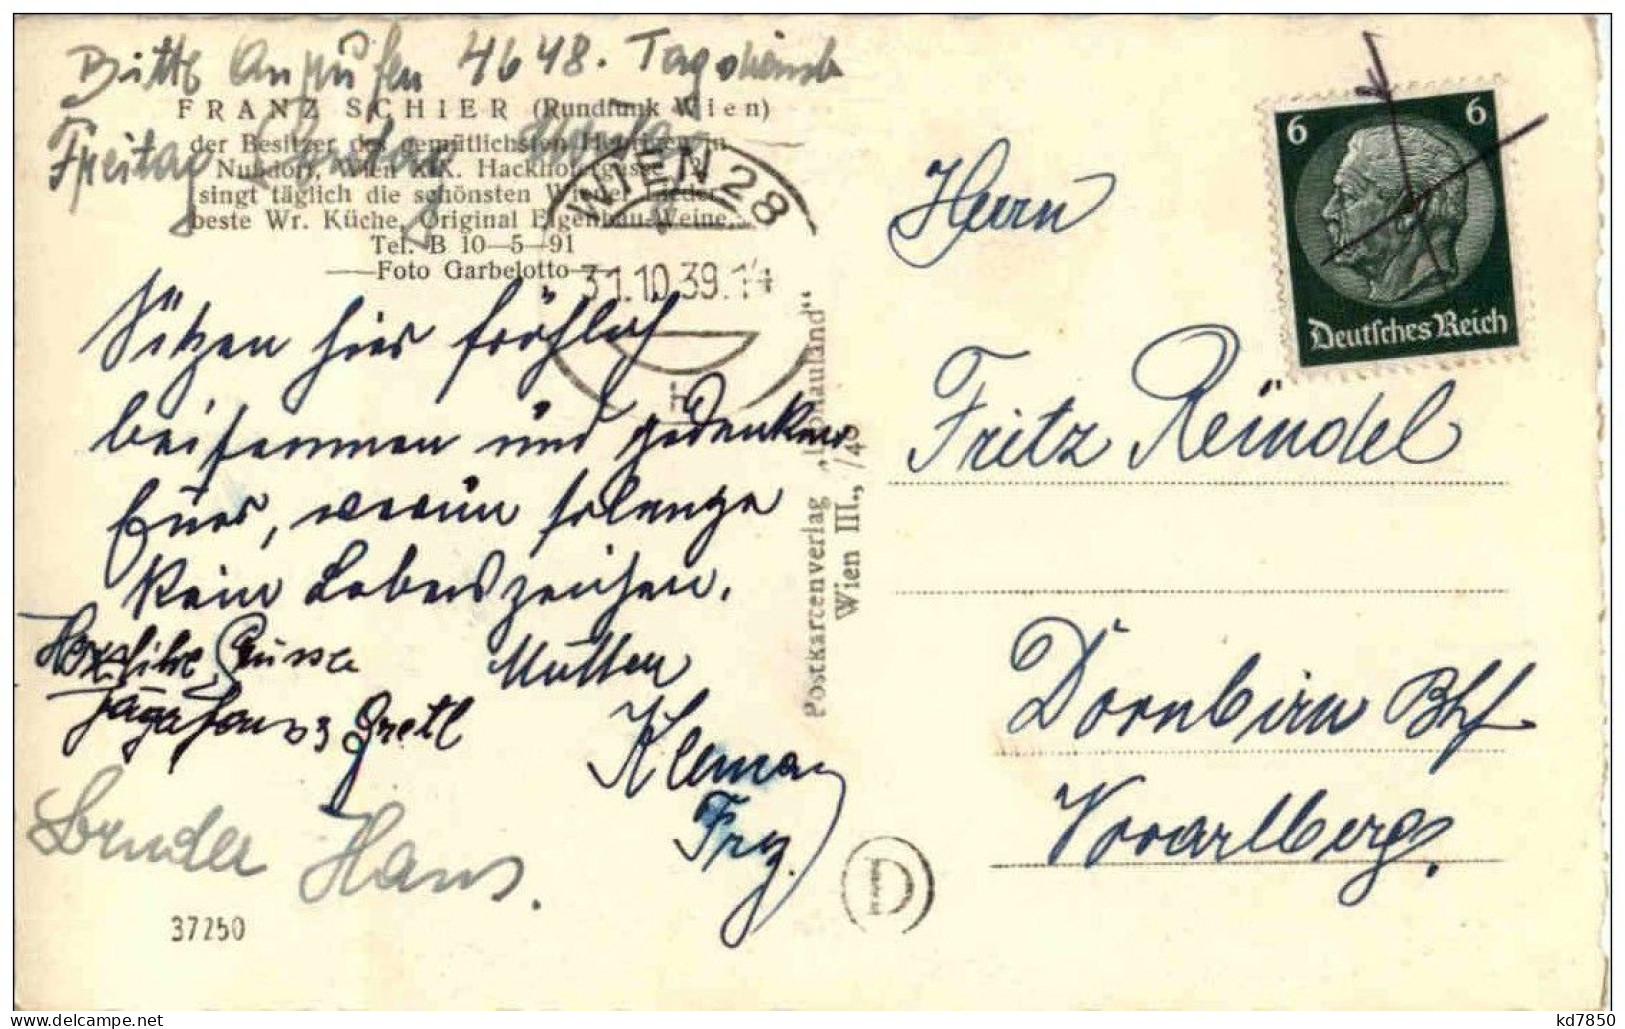 Bitte Anrufen 4648. Tagsüber
FRANZ SCHIER (Rundfunk Wien)
der Besitzer des gemütlichsten Heurigen in
Nußdorf, Wien XIX. Hackhofergasse
singt täglich die schönsten Wiener Lieder
beste Wr. Küche, Original Eigenbau-Weine,
Tel. B 10—5—91
—Foto Garbelotto—
Freitag
WIEN 28
31.10.39.14
Sitzen hier fröhlich
beisammen und gedenken
Euer, warum solange
kein Lebenszeichen.
Herzliche Grüsse
Mutter
Gretl
Klema
Fry.
bruder Hans.
37250
Postkartenverlag „Donauland“
Wien III., /40
D
6 6
Deutsches Reich
Herrn
Fritz Reindel
Dornbirn Bhf
Vorarlberg.
kd7850